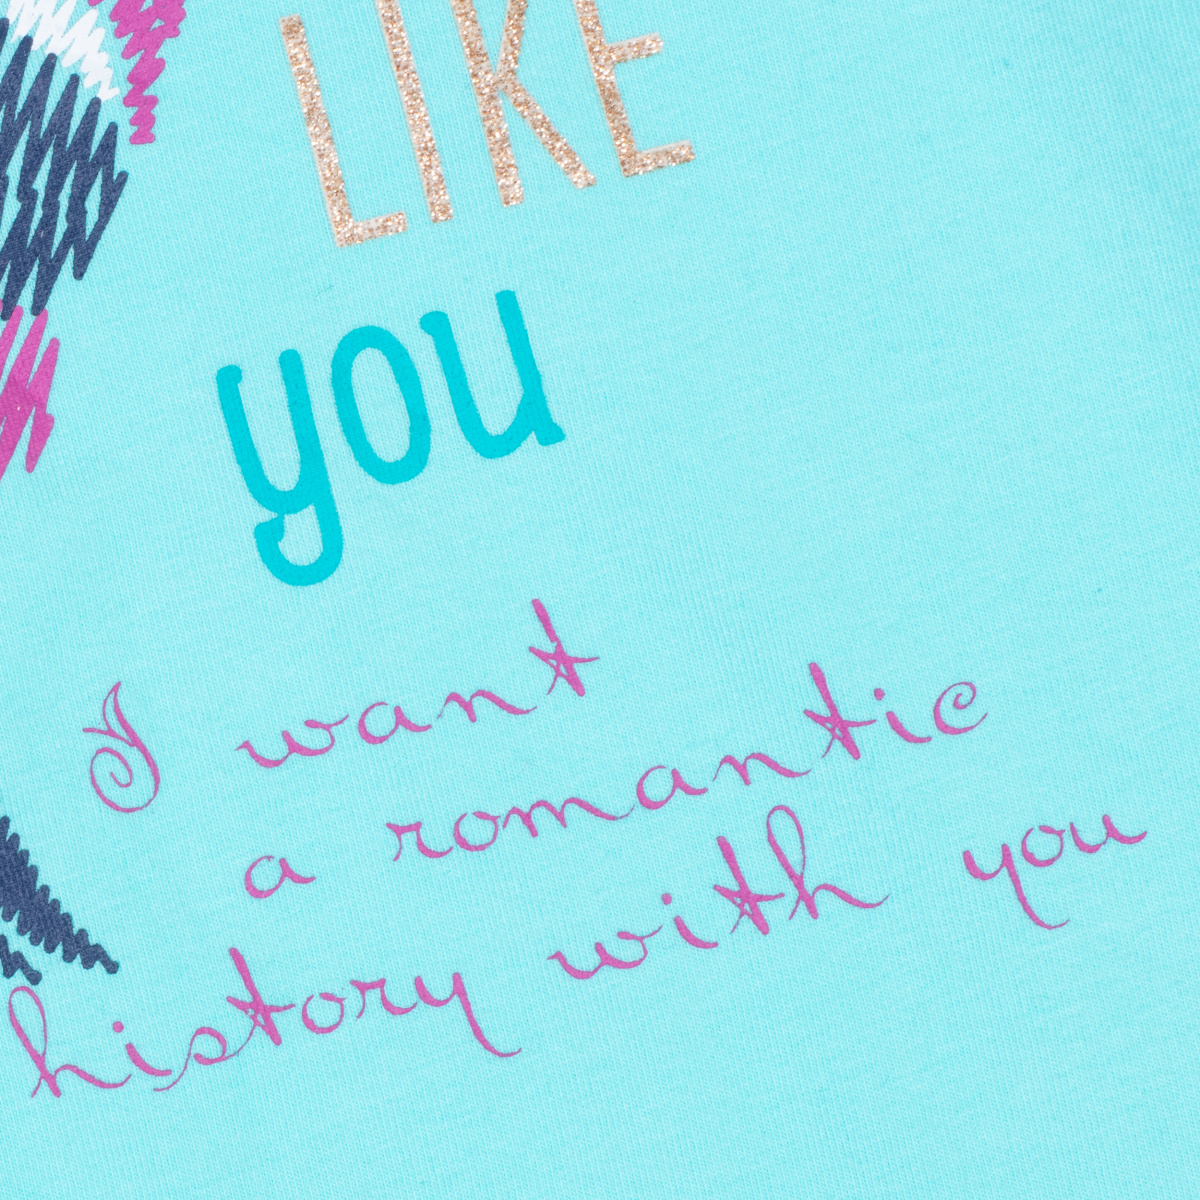 LIKE
you
I want
a romantic
history with you